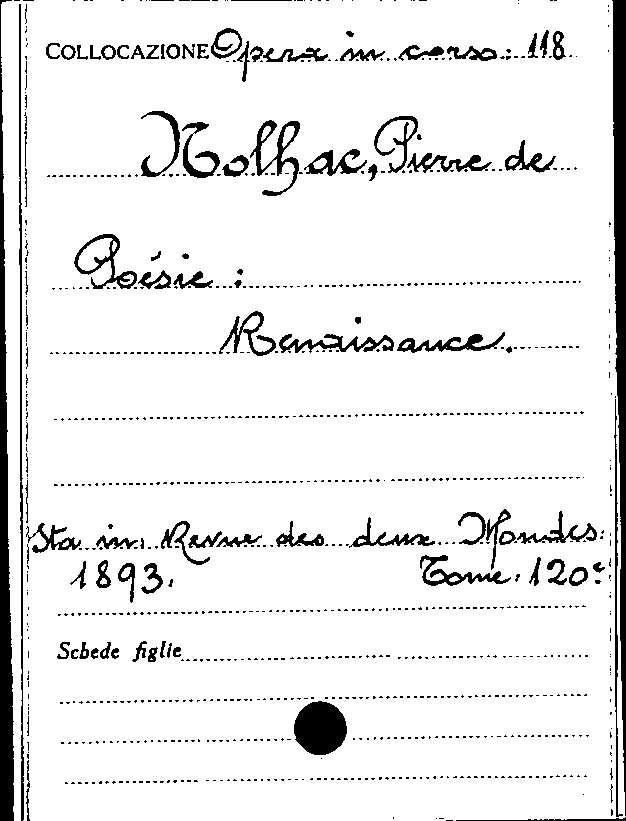 COLLOCAZIONE Opera in corso: 118
Nolhac, Pierre de
Poésie :
Renaissance.
Sta in: Revue des deux Mondes:
1893. Tome: 120º
Schede figlie